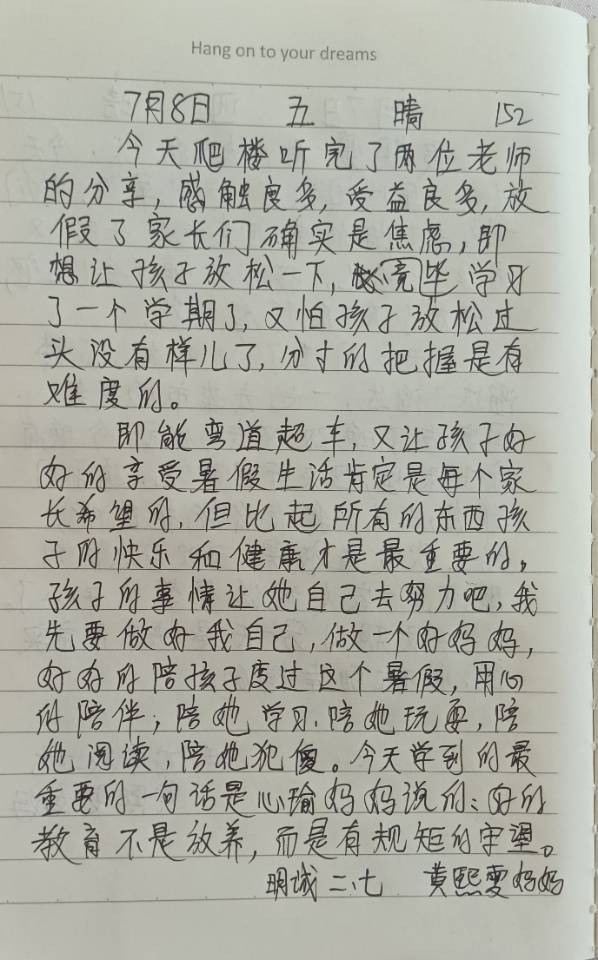 Hang on to your dreams
7月8日 五 晴 152
今天爬楼听完了两位老师
的分享，感触良多，受益良多，放
假了家长们确实是焦虑，即
想让孩子放松一下，必竟毕学习
了一个学期了，又怕孩子放松过
头没有样儿了，分寸的把握是有
难度的。
即能弯道超车，又让孩子好
好的享受暑假生活肯定是每个家
长希望的，但比起所有的东西孩
子的快乐和健康才是最重要的。
孩子的事情让她自己去努力吧，我
先要做好我自己，做一个好妈妈，
好好的陪孩子度过这个暑假，用心
的陪伴；陪她学习，陪她玩耍，陪
她阅读，陪她犯傻。今天学到的最
重要的一句话是心瑜妈妈说的：好的
教育不是放养，而是有规矩的守望。
明城二.七 黄熙雯妈妈